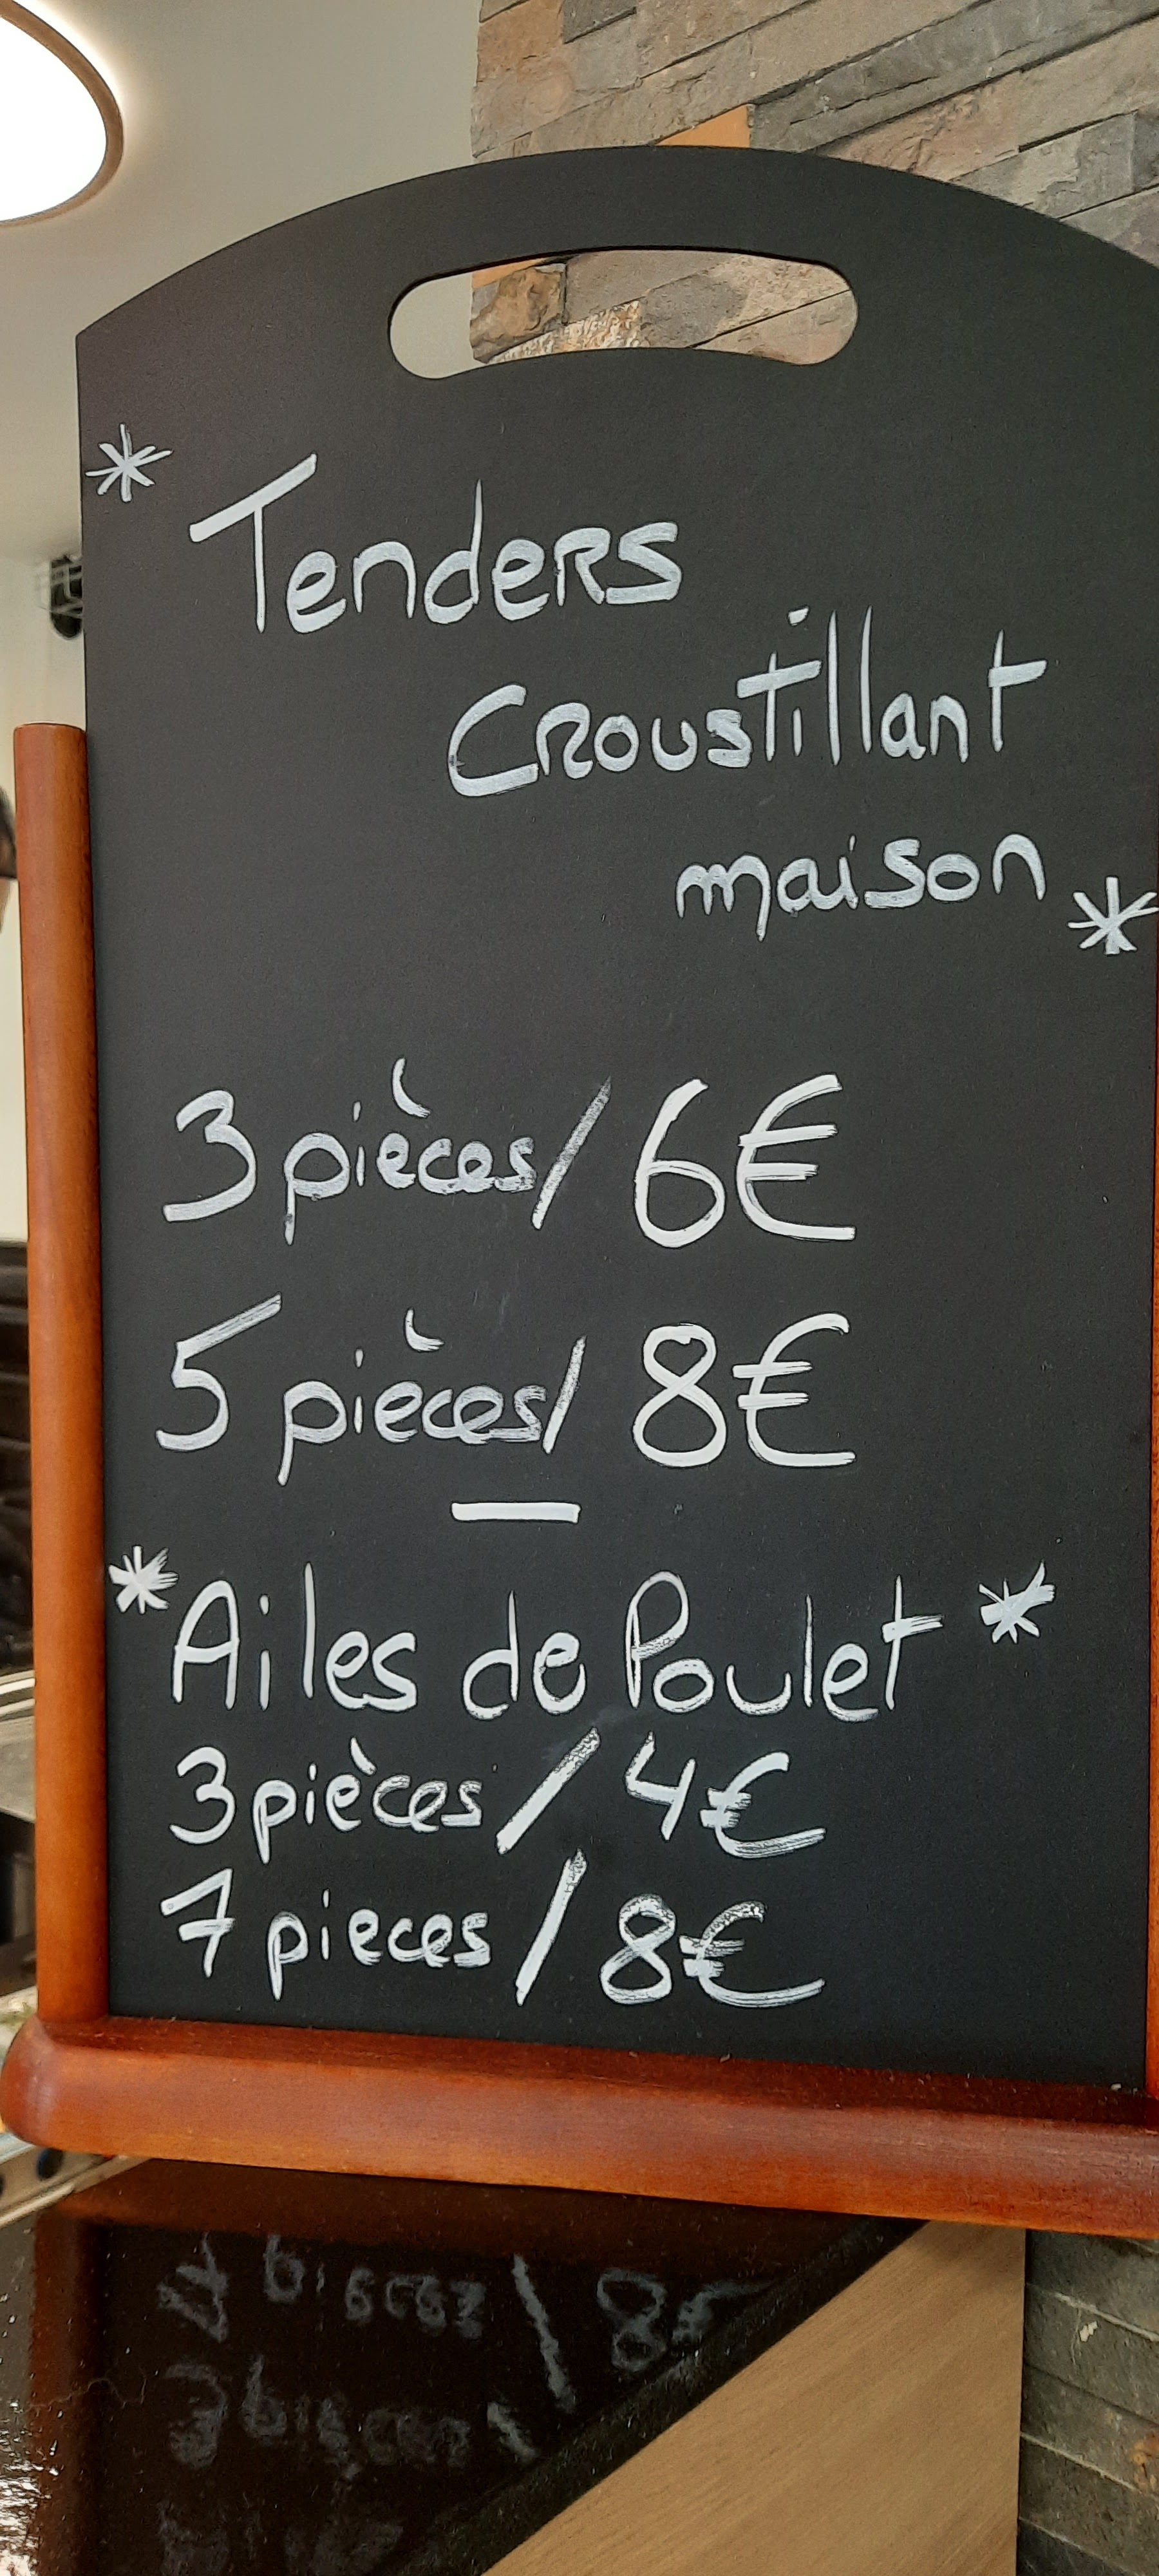 * Tenders
Croustillant
maison *
3 pièces / 6€
5 pièces / 8€
* Ailes de Poulet *
3 pièces / 4€
7 pieces / 8€